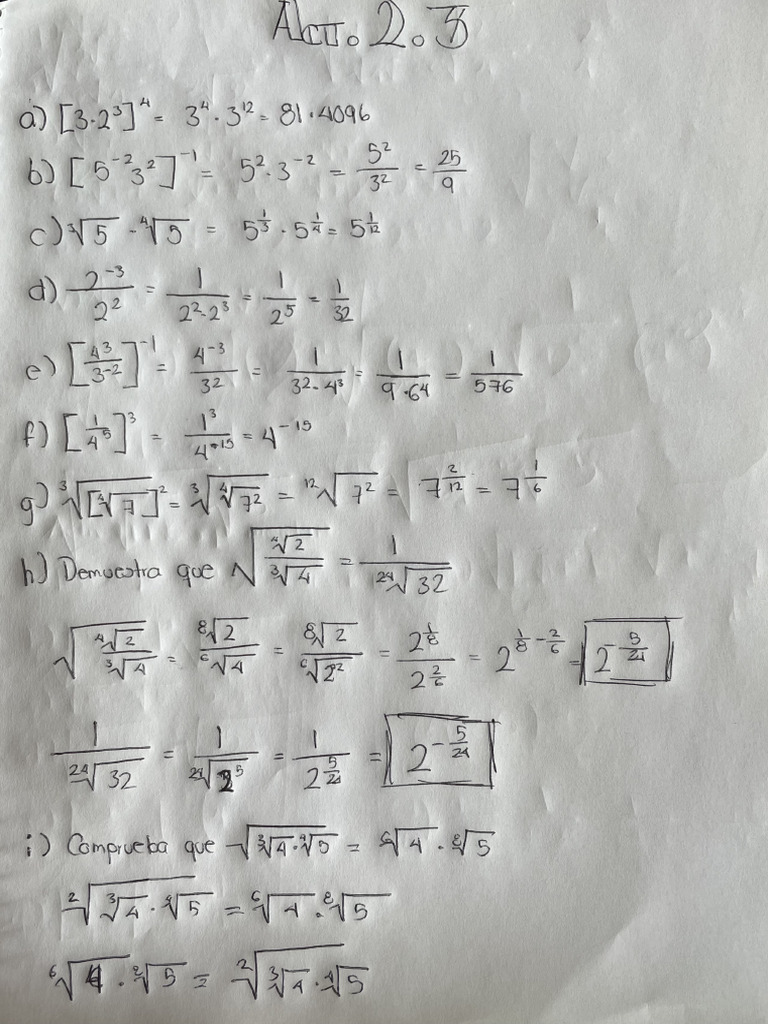 Act. 2.3
a) [3·2³]⁴ = 3⁴ · 3¹² = 81 · 4096
b) [5⁻² 3²]⁻¹ = 5² · 3⁻² = 5²/3² = 25/9
c) ∛5 · ∜5 = 5^(1/3) · 5^(1/4) = 5^(1/12)
d) 2⁻³/2² = 1/(2²·2³) = 1/2⁵ = 1/32
e) [4³/3⁻²]⁻¹ = 4⁻³/3² = 1/(3²·4³) = 1/(9·64) = 1/576
f) [1/4⁵]³ = 1³/4⁺¹⁵ = 4⁻¹⁵
g) ∛([∜7]²) = ∛(∜(7²)) = ¹²√(7²) = 7^(2/12) = 7^(1/6)
h) Demuestra que √(∜2/∛4) = 1/²⁴√32
√(∜2/∛4) = ⁸√2/⁶√4 = ⁸√2/⁶√(2²) = 2^(1/8)/2^(2/6) = 2^(1/8 - 2/6) = 2^(-5/24)
1/²⁴√32 = 1/²⁴√(2⁵) = 1/2^(5/24) = 2^(-5/24)
i) Comprueba que √(∛4·∜5) = ⁶√4 · ⁸√5
²√(∛4 · ∜5) = ⁶√4 · ⁸√5
⁶√4 · ⁸√5 = ²√(∛4 · ∜5)